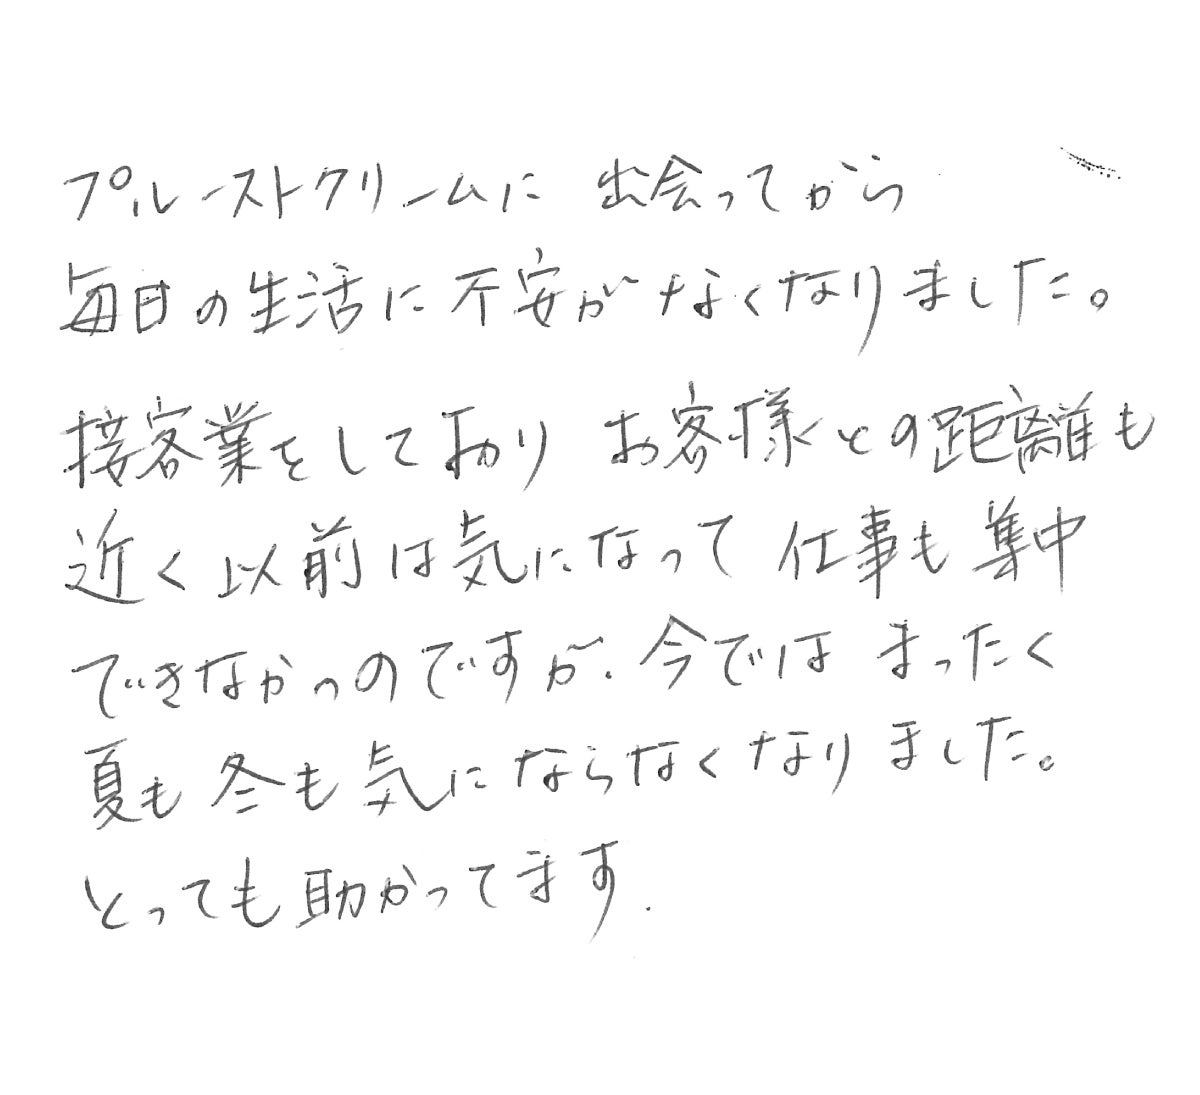 プルーストクリームに 出会ってから
毎日の生活に不安がなくなりました。
接客業をしており お客様との距離も
近く以前は気になって 仕事も集中
できなかっのですが、今では まったく
夏も冬も気にならなくなりました。
とっても助かってます.